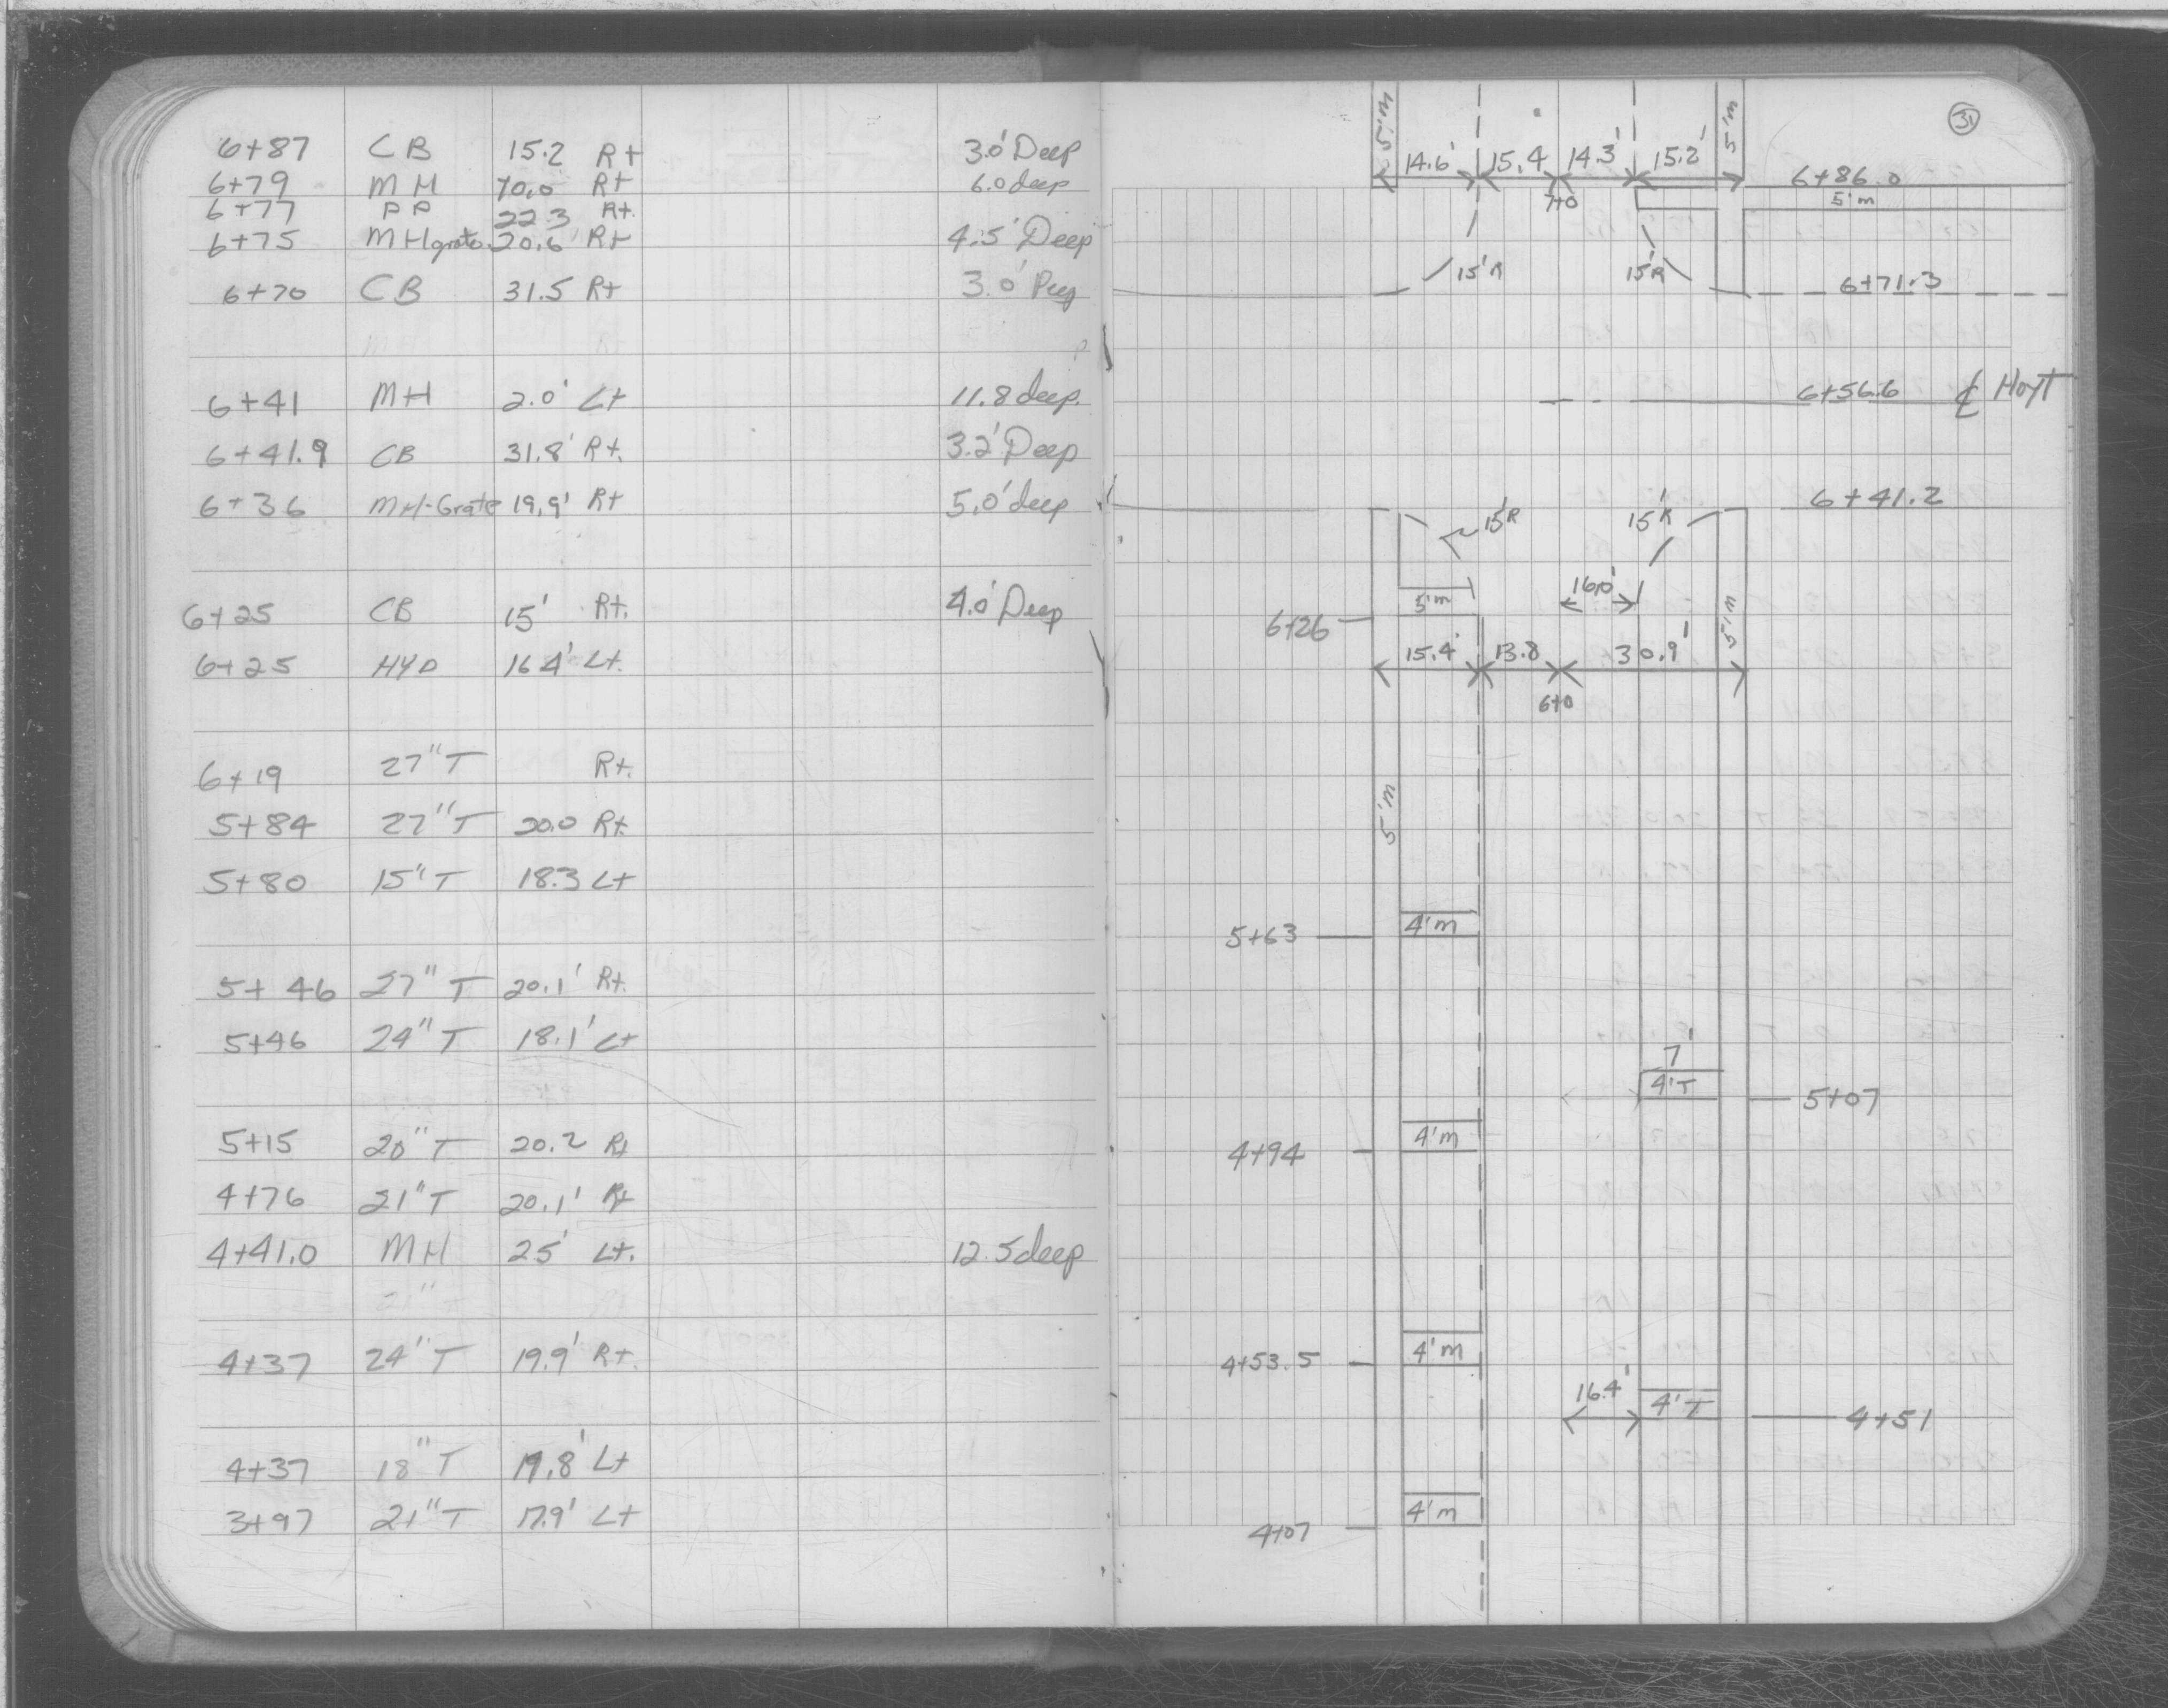 6+87 CB 15.2 Rt 3.0' Deep
6+79 MH 70.0 Rt 6.0 deep
6+77 PP 22.3 Rt.
6+75 MH grate 20.6' Rt 4.5' Deep
6+70 CB 31.5 Rt 3.0' Deep
6+41 MH 2.0' Lt 11.8 deep.
6+41.9 CB 31.8' Rt. 3.2' Deep
6+36 MH-Grate 19.9' Rt 5.0' deep
6+25 CB 15' Rt. 4.0' Deep
6+25 HYD 16.4' Lt.
6+19 27" T Rt.
5+84 27" T 20.0 Rt.
5+80 15" T 18.3 Lt
5+46 27" T 20.1' Rt.
5+46 24" T 18.1' Lt
5+15 20" T 20.2 Rt
4+76 21" T 20.1' Rt
4+41.0 MH 25' Lt. 12.5 deep
4+37 24" T 19.9' Rt.
4+37 18" T 19.8' Lt
3+97 21" T 17.9' Lt
31
5'm 5'm
14.6' 15.4 14.3' 15.2'
6+86.0
7+0 5'm
15'R 15'R 6+71.3
6+56.6 ℄ Hoyt
6+41.2
15'R 15'R
16.0'
5'm 5'm
6+26
15.4' 13.8 30.9'
6+0
5'm
5+63 4'm
7'
4'T 5+07
4+94 4'm
4+53.5 4'm
16.4' 4'T 4+51
4+07 4'm